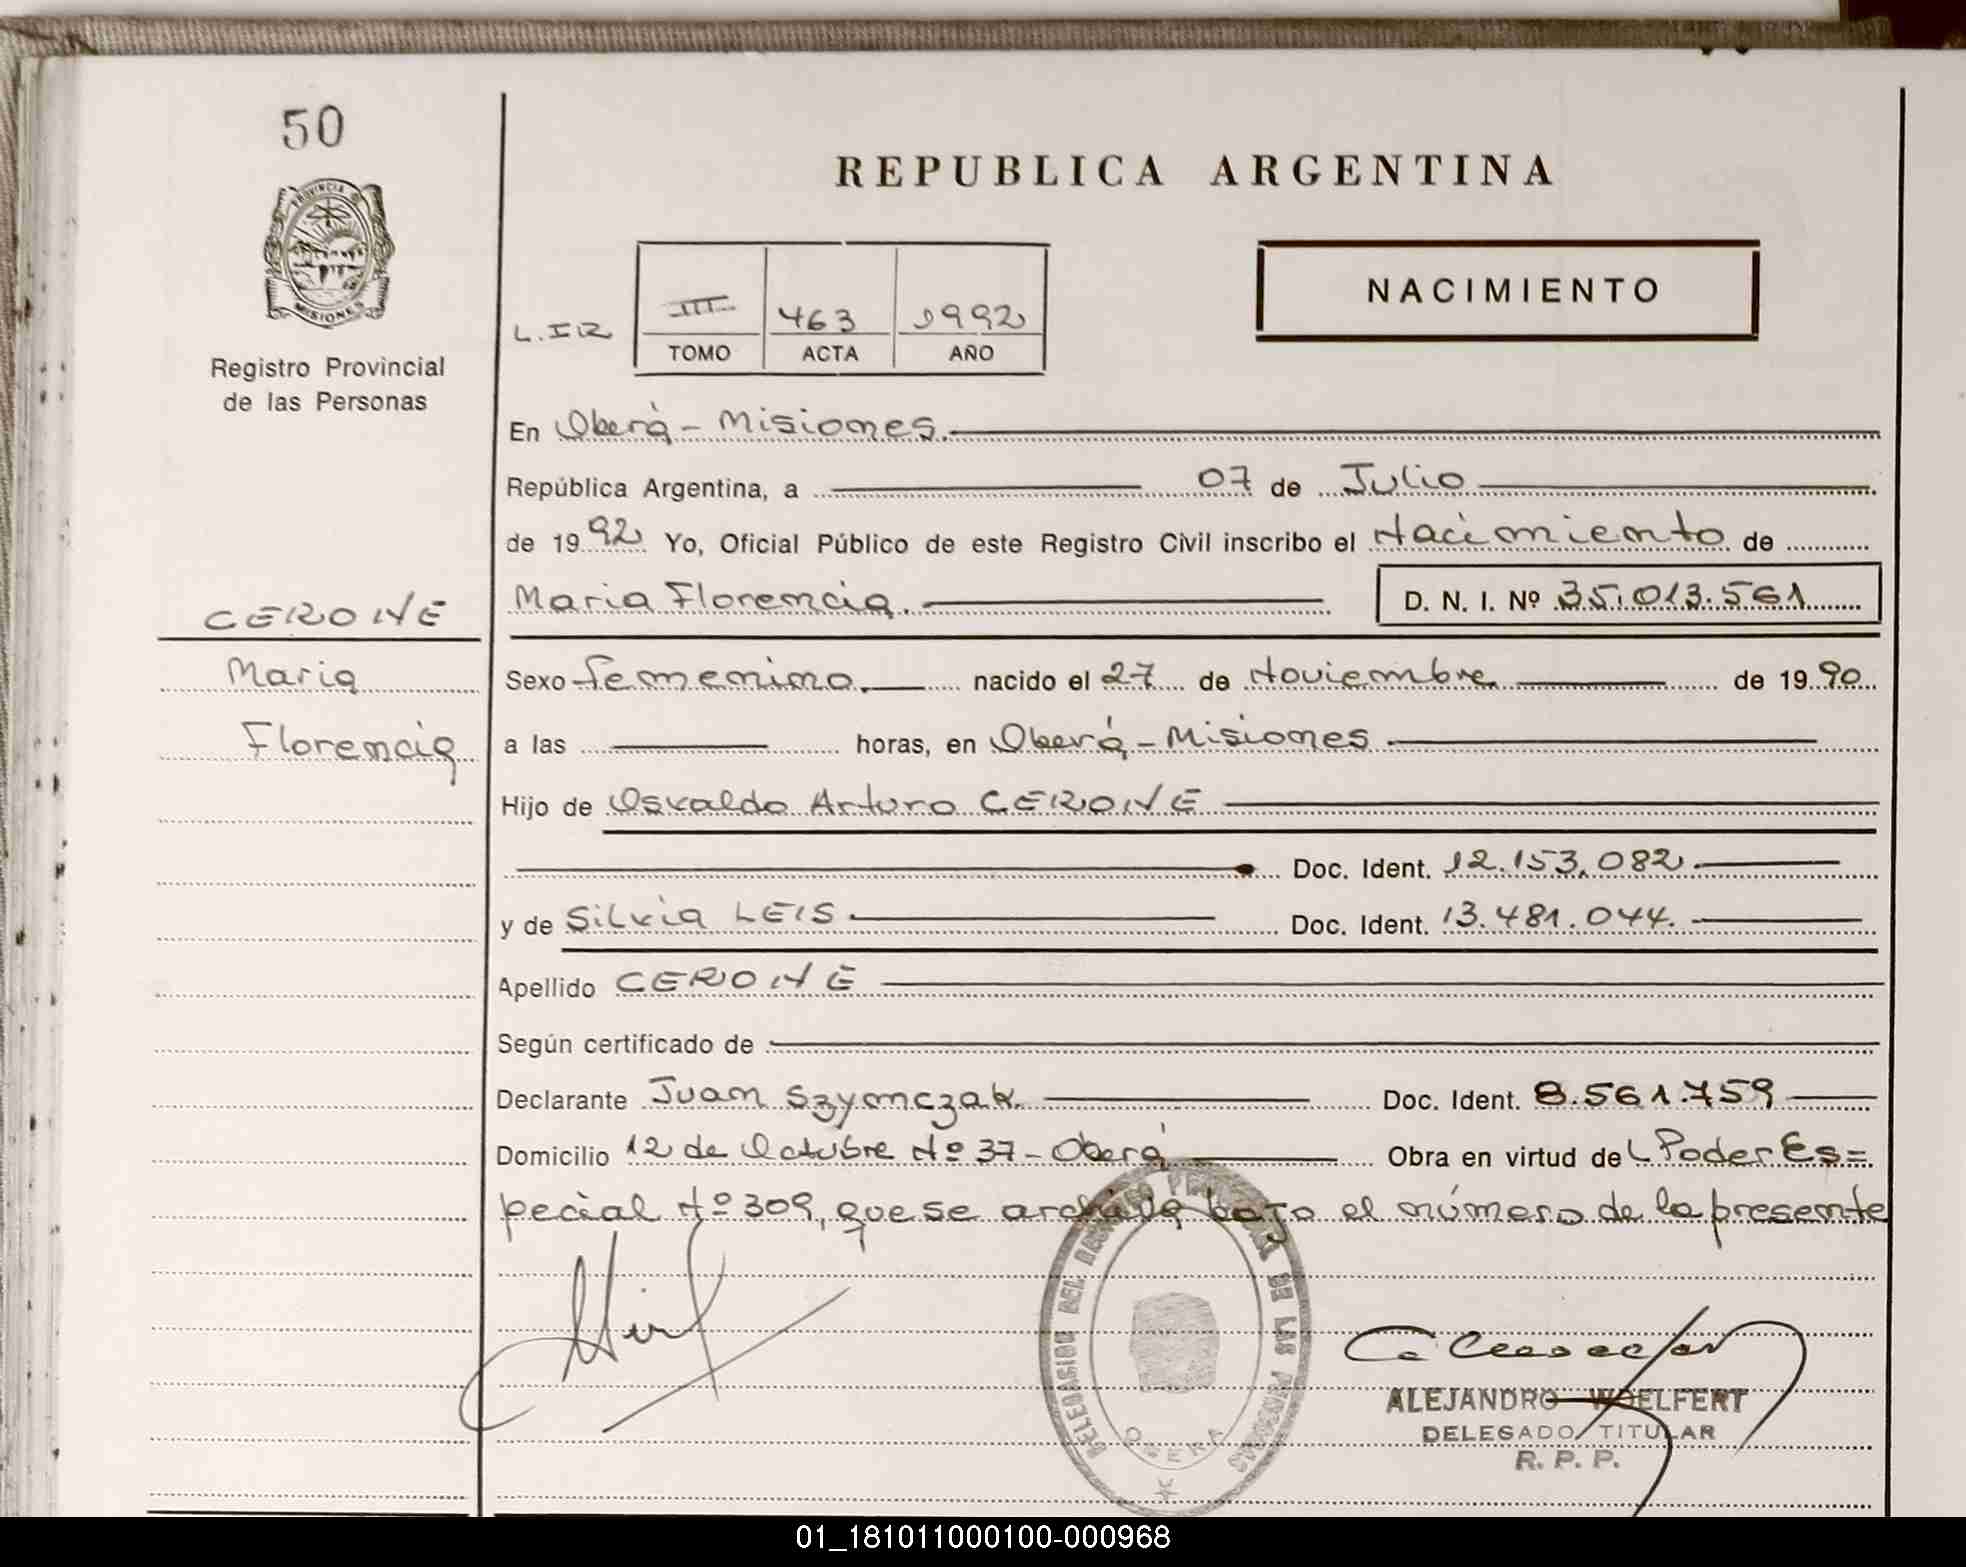 50
REPUBLICA ARGENTINA
PROVINCIA DE
MISIONES
Registro Provincial
de las Personas
L. IR
III 463 1992
TOMO ACTA AÑO
NACIMIENTO
En Oberá - Misiones.
República Argentina, a 07 de Julio
de 1992 Yo, Oficial Público de este Registro Civil inscribo el Nacimiento de
Maria Florencia. D. N. I. Nº 35.013.561
CERONE
Maria
Florencia
Sexo femenino. nacido el 27 de Noviembre de 1990
a las horas, en Oberá - Misiones
Hijo de Osvaldo Arturo CERONE
Doc. Ident. 12.153.082.
y de Silvia LEIS. Doc. Ident. 13.481.044.
Apellido CERONE
Según certificado de
Declarante Juan Szymczak. Doc. Ident. 8.561.759
Domicilio 12 de Octubre Nº 37 - Oberá Obra en virtud del Poder Es=
pecial Nº 309, que se archiva bajo el número de la presente
DELEGACION DEL REGISTRO PROVINCIAL DE LAS PERSONAS
OBERA
ALEJANDRO WOELFERT
DELEGADO TITULAR
R. P. P.
01_181011000100-000968